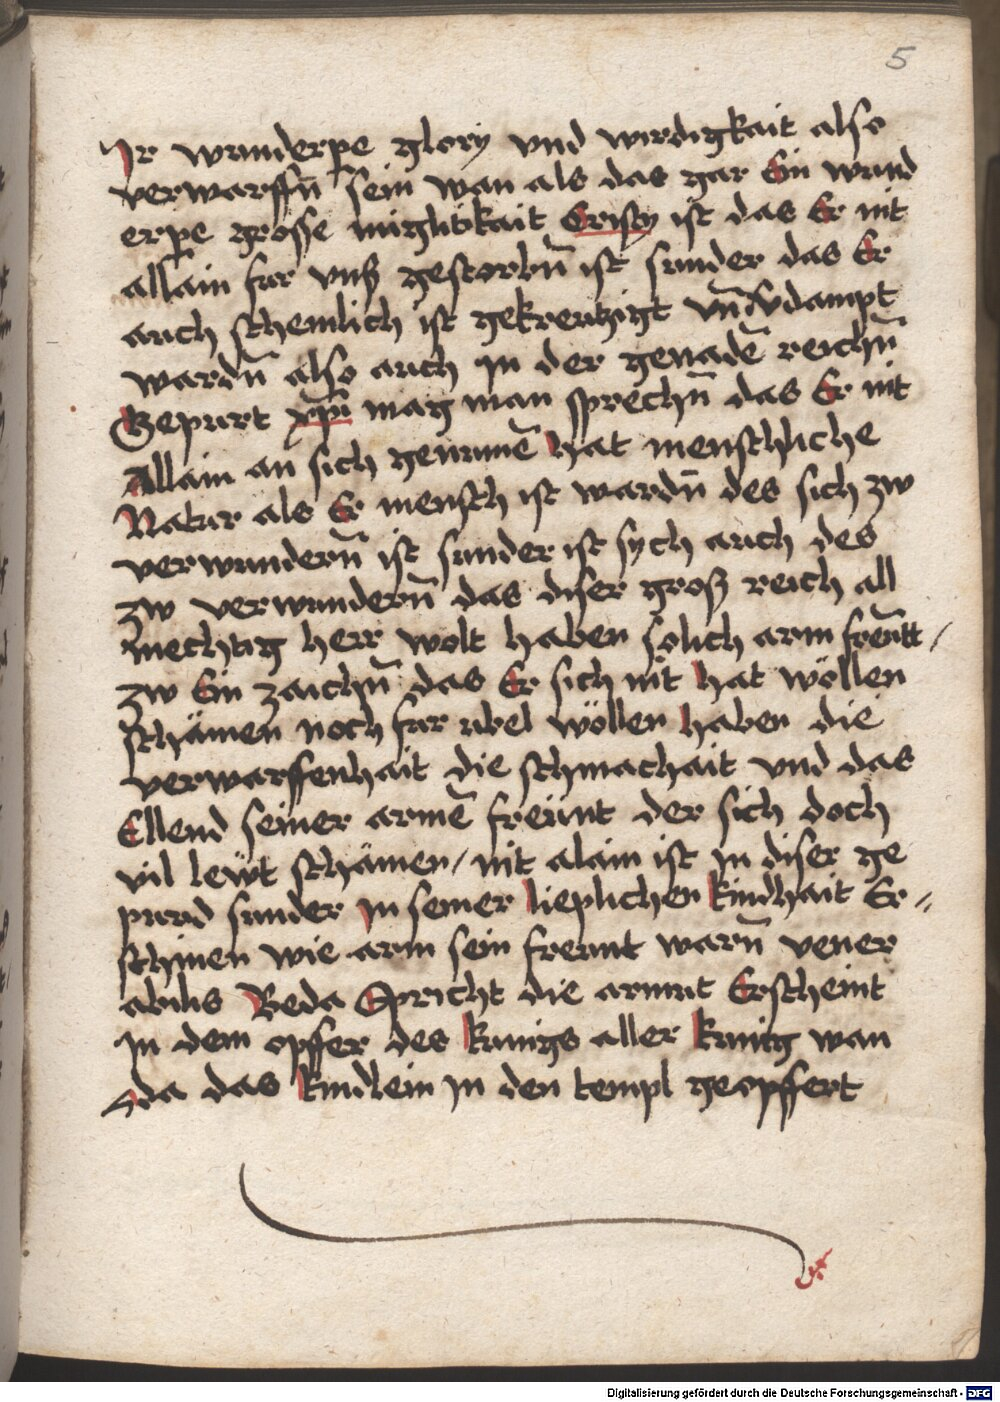 5
Ir wunderpe glory vnd wirdigkait also
verwarffn̄ sein wan als das gar Ein wund
erpe grosse miglikait Cristy ist das Er nit
allain fur vnß gestorbn̄ ist sunder das Er
auch schemlich ist gekreutzigt vn̄ v̄dampt
wardn̄ also auch In der genadē reichn̄
Gepurt xp̄i mag man sprechn̄ das Er nit
Allain an sich genumē hat menschliche
Natur als Er mensch ist wardn̄ des sich zw
verwundern̄ ist sunder ist sych auch des
zw verwundern̄ das diser groß reich all
mechtig herr wolt haben solich arm freūtt /
zw Ein zaichn̄ das Er sich nit hat wöllen
schämen noch fur ubel wöllen haben die
verwarffenhait die schmachait vnd das
Ellend seiner armē freünt der sich doch
vil lewt schämen / nit alain ist In diser ge
purd sunder In seiner lieplichen kindhait Er //
schinen wie arm sein freunt warn̄ vener
abilis Beda Spricht die armut Erscheint
In dem opffer des kunigs aller kunig wan
da das kindlein In den templ geopffert
Digitalisierung gefördert durch die Deutsche Forschungsgemeinschaft - DFG